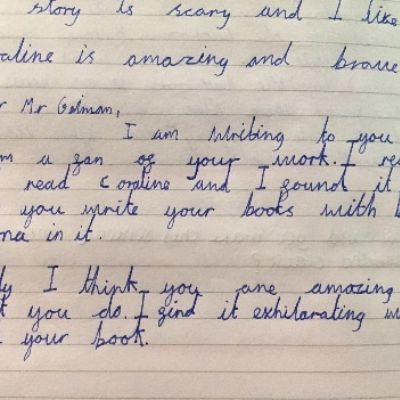 story is scary and I like
aline is amazing and brave
r Mr Gaiman,
I am writing to you
m a fan of your work. I
read Coraline and I found it
you write your books with
in it.
I think you are amazing
you do. I find it exhilarating
your book.